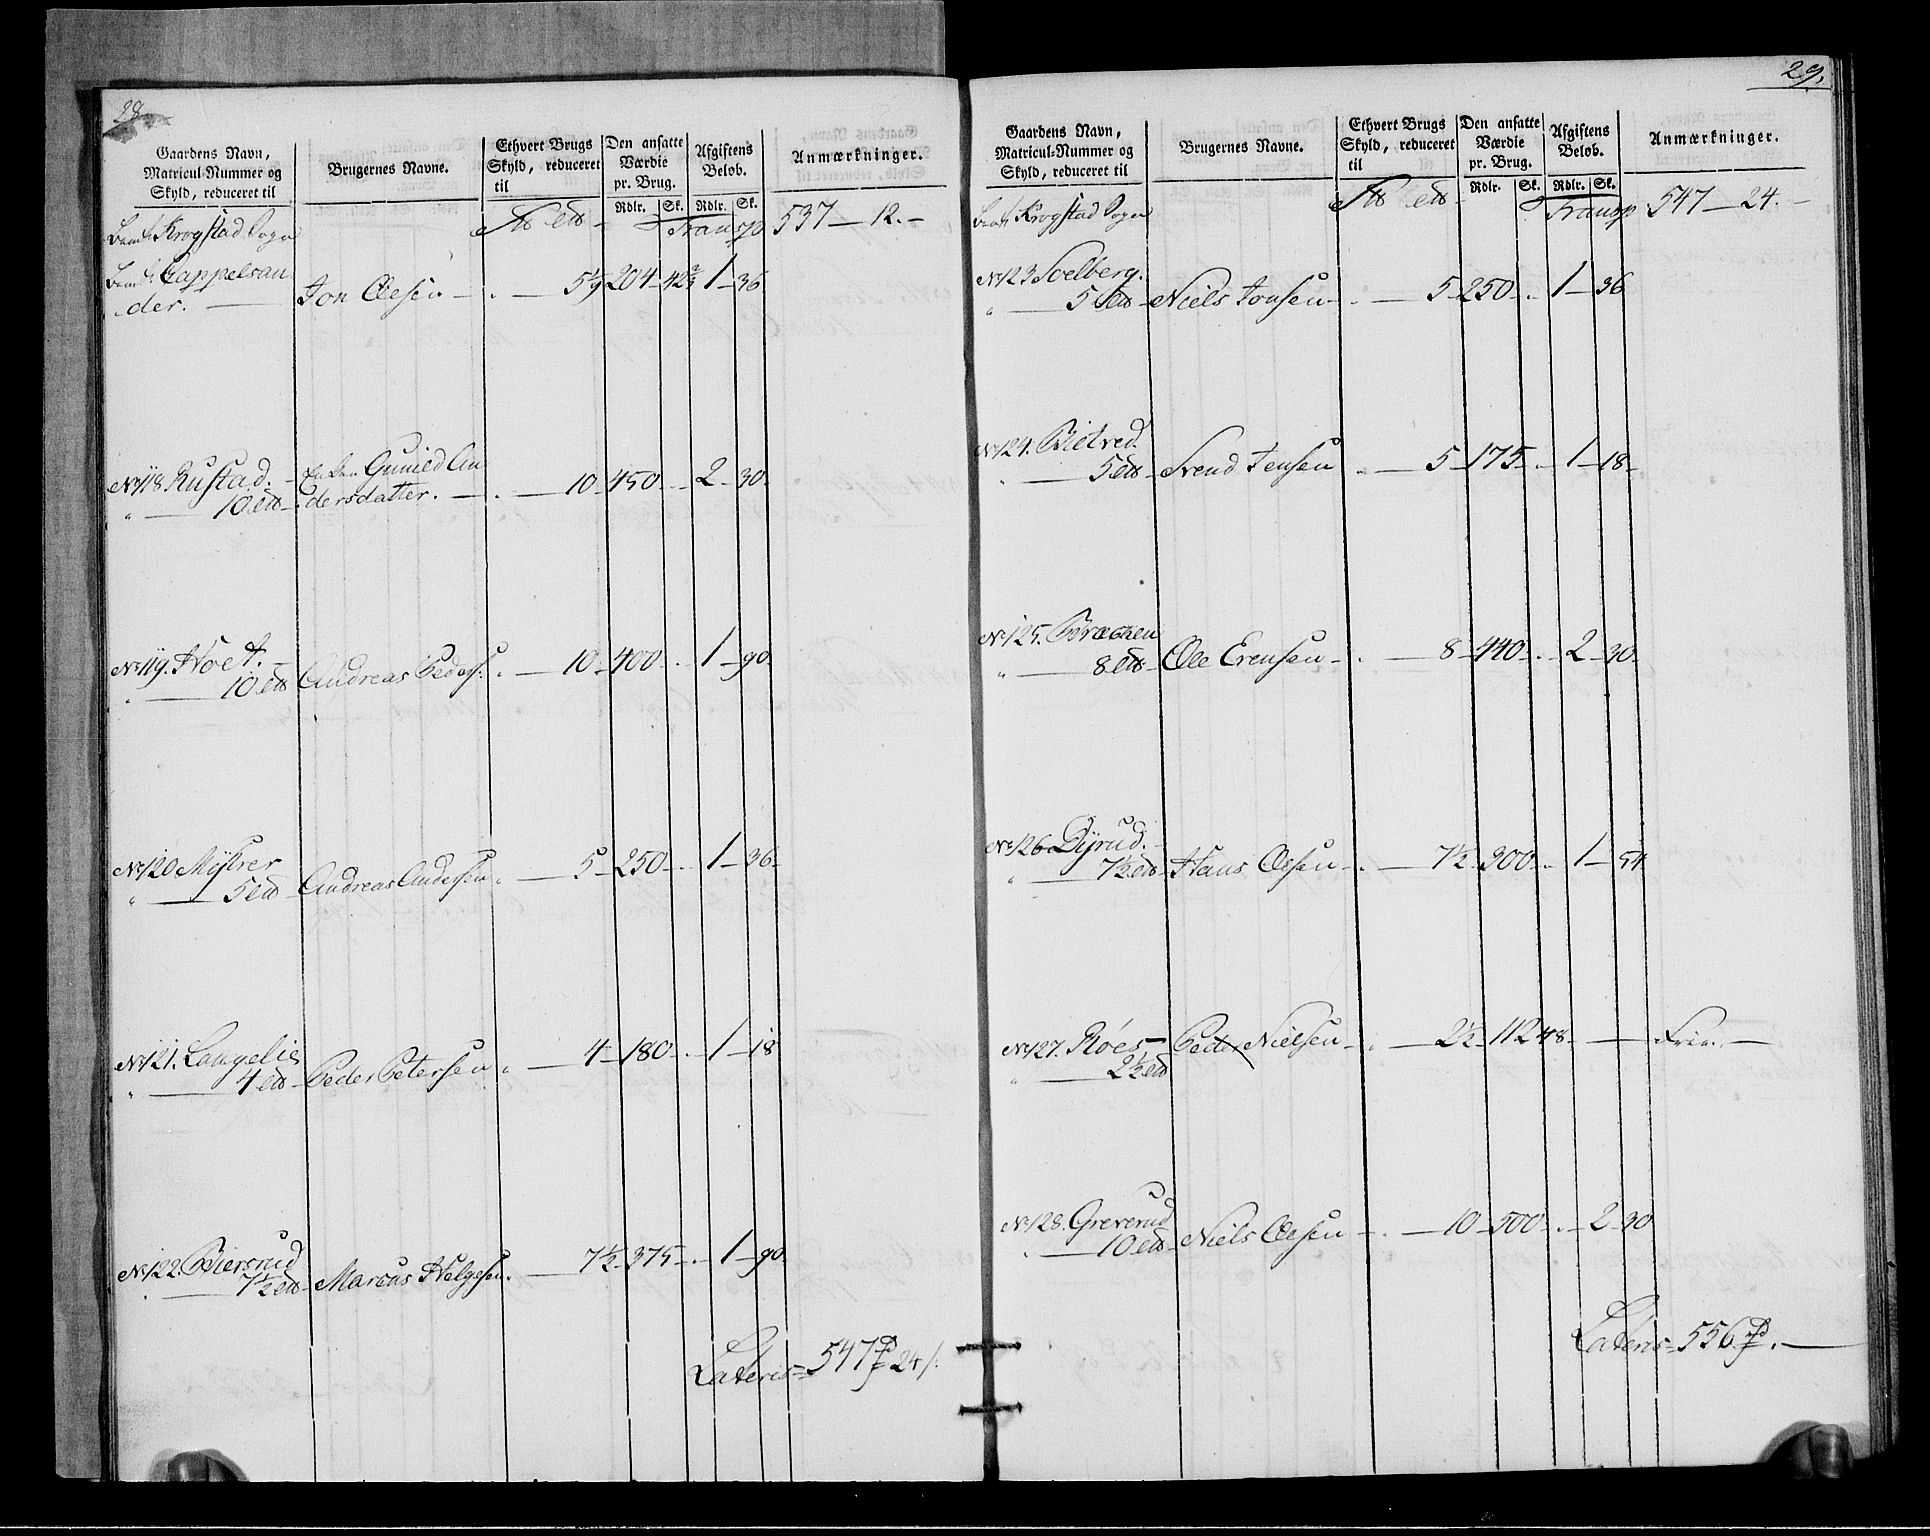 28.
Gaardens Navn, Matricul-Nummer og Skyld, reduceret til
Brugernes Navne.
Ethvert Brugs Skyld, reduceret til
Den ansatte Værdie pr. Brug.
Afgiftens Beløb.
Anmærkninger.
Rdlr. Sk. Rdlr. Sk.
Krogstad Sogn
Transp 537 — 12. —
Cappelsan
der. — Jon Olesen — 5 1/9 204 — 42 2/3 1 — 36
No 118. Rustad. Enken Gunild An
10 — dersdatter. — 10 — 450 — . — 2 — 30
No 119. Hoel.
10 — Andreas Peders: — 10 — 400 — . 1 — 90
No 120 Myhrer
5 — Andreas Andersen — 5 — 250 — . 1 — 36
No 121. Langelie
4 — Peder Petersen — 4 — 180 — . 1 — 18
No 122. Biersrud
7 1/2 — Marcus Helgesen. — 7 1/2 — 375 — . 1 — 90
Lateris = 547 24
29.
Gaardens Navn, Matricul-Nummer og Skyld, reduceret til
Brugernes Navne.
Ethvert Brugs Skyld, reduceret til
Den ansatte Værdie pr. Brug.
Afgiftens Beløb.
Anmærkninger.
Rdlr. Sk. Rdlr. Sk.
Krogstad Sogn
Transp 547 — 24. —
No 123 Soelberg.
5 — Niels Jonsen — 5 — 250 — . 1 — 36
No 124.
5 — Svend Jensen — 5 — 175 — . 1 — 18
No 125. Bræchen
8 — Ole Evensen — 8 — 440 — . 2 — 30
No 126 Dyrud.
7 1/2 — Hans Olsen — 7 1/2 — 300 — . 1 — 54
No 127. Röes — Peder Nielsen — 2 1/2 — 112 48 — — Frie. —
2 1/2
No 128. Greverud
10 — Niels Olesen — 10 — 500 — . 2 — 30
Lateris = 556 . —